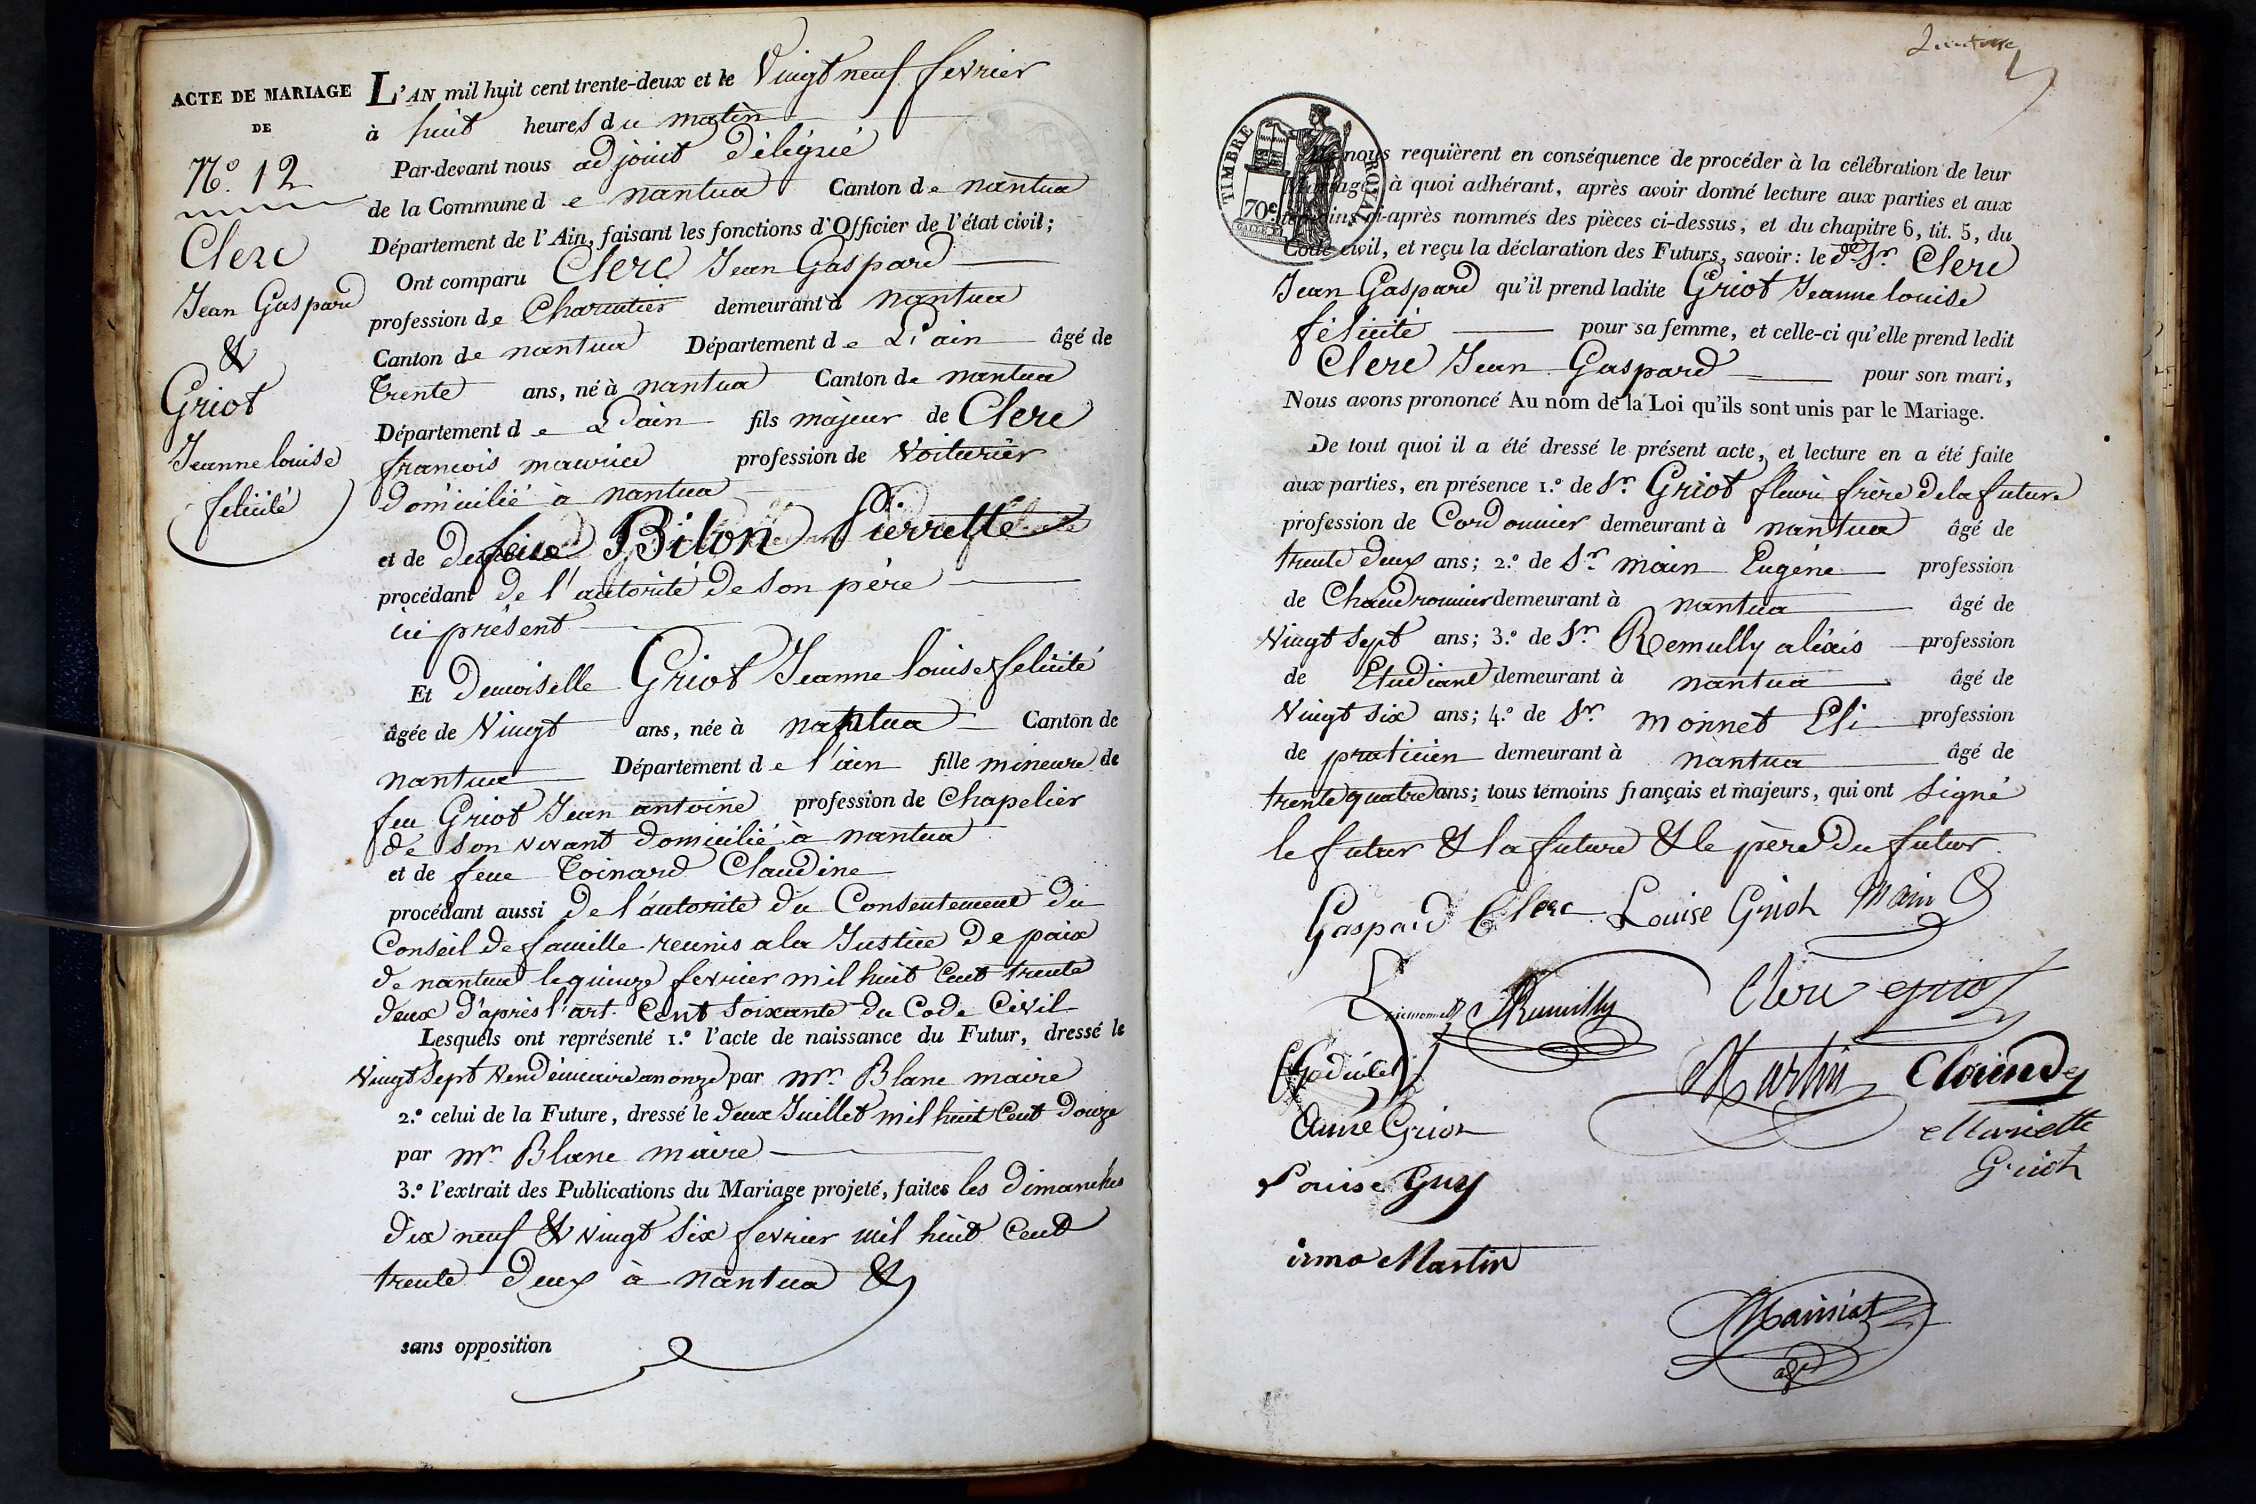 ACTE DE MARIAGE
DE
N.º 12
Clerc
Jean Gaspard
&
Griot
Jeanne louise
félicité
L'AN mil huit cent trente-deux et le Vingt neuf fevrier
à huit heures du matin
Par-devant nous adjoint délégué
de la Commune de nantua Canton de nantua
Département de l'Ain, faisant les fonctions d'Officier de l'état civil;
Ont comparu Clerc Jean Gaspard
profession de Charcutier demeurant à nantua
Canton de nantua Département de L'ain âgé de
trente ans, né à nantua Canton de nantua
Département de L'ain fils majeur de Clerc
francois maurice profession de Voiturier
domicilié à nantua
et de feue Bilon Pierrette
procédant de l'autorité de son père
ici présent
Et demoiselle Griot Jeanne louise félicité
âgée de Vingt ans, née à nantua Canton de
nantua Département de l'ain fille mineure de
feu Griot Jean antoine profession de Chapelier
de son vivant domicilié à nantua
et de feue Toinard Claudine
procédant aussi de l'autorité du Consentement du
Conseil de famille reunis a la Justice de paix
de nantua le quinze fevrier mil huit Cent trente
deux d'après l'art. Cent soixante du Code Civil
Lesquels ont représenté 1.º l'acte de naissance du Futur, dressé le
Vingt sept Vendémiaire an onze par mr. Blanc maire
2.º celui de la Future, dressé le deux Juillet mil huit Cent douze
par mr. Blanc maire
3.º l'extrait des Publications du Mariage projeté, faites les dimanches
dix neuf & vingt six fevrier mil huit Cent
trente deux à nantua &
sans opposition
TIMBRE ROYAL
70c
nous requièrent en conséquence de procéder à la célébration de leur
Mariage, à quoi adhérant, après avoir donné lecture aux parties et aux
témoins ci-après nommés des pièces ci-dessus, et du chapitre 6, tit. 5, du
Code civil, et reçu la déclaration des Futurs, savoir: le dt Sr. Clerc
Jean Gaspard qu'il prend ladite Griot Jeanne louise
félicité pour sa femme, et celle-ci qu'elle prend ledit
Clerc Jean Gaspard pour son mari,
Nous avons prononcé Au nom de la Loi qu'ils sont unis par le Mariage.
De tout quoi il a été dressé le présent acte, et lecture en a été faite
aux parties, en présence 1.º de Sr. Griot fleuri frère de la future
profession de Cordonnier demeurant à nantua âgé de
trente deux ans; 2.º de Sr. main Eugène profession
de Chaudronnier demeurant à nantua âgé de
Vingt sept ans; 3.º de Sr. Remully aléxis profession
de Etudiant demeurant à nantua âgé de
Vingt six ans; 4.º de Sr. monnet Eli profession
de praticien demeurant à nantua âgé de
trente quatre ans; tous témoins français et majeurs, qui ont signé
le futur & la future & le père du futur.
Gaspard Clerc Louise Griot Main
Rumilly Clerc griot
Martin
Aimé Griot Mariette
Griot
Louise Guy
irma Martin
adj